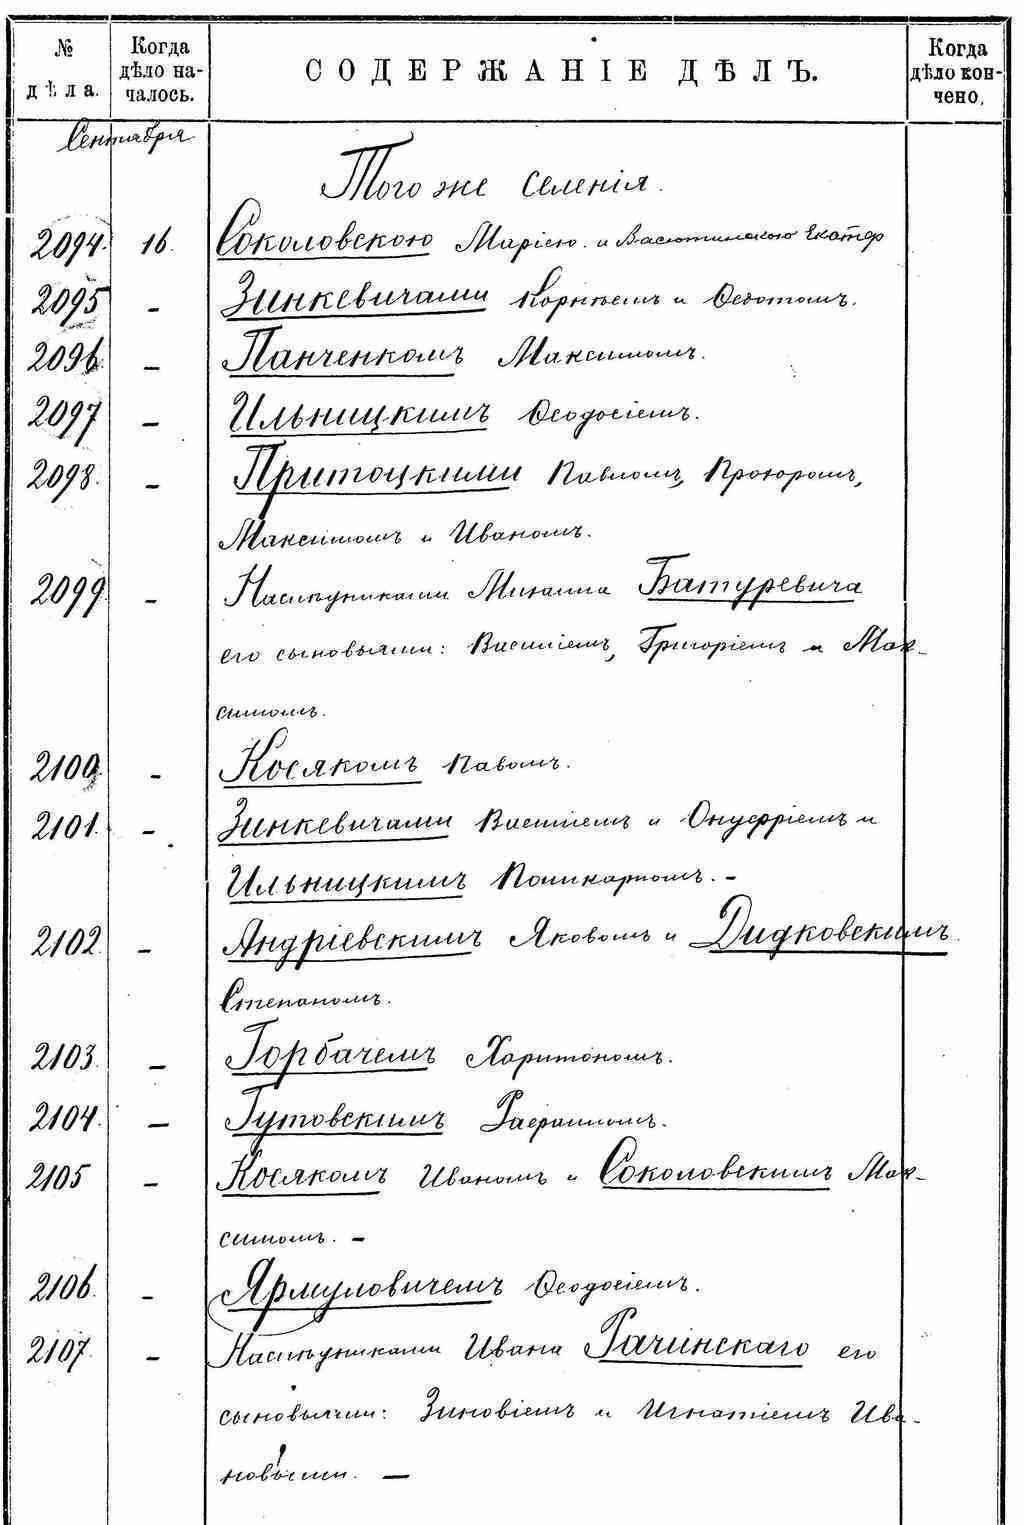 № дѣла.	Когда дѣло началось.	СОДЕРЖАНІЕ ДѢЛЪ.	Когда дѣло кончено.
Сентября
Того же селенія.
2094.	16.	Соколовскою Маріею и Васютинскою Екатер
2095	–	Зинкевичами Корнѣемъ и Ѳедотомъ.
2096.	–	Панченкомъ Максимомъ.
2097	–	Ильницкимъ Ѳеодосіемъ.
2098.	–	Притоцкими Павломъ, Прохоромъ,
Максимомъ и Иваномъ.
2099.	–	Наслѣдниками Михаила Батуревича
его сыновьями: Василіемъ, Григоріемъ и Мак-
симомъ.
2100.	–	Косякомъ Павломъ.
2101.	–	Зинкевичами Василіемъ и Онуфріемъ и
Ильницкимъ Поликарпомъ. –
2102.	–	Андріевскимъ Яковомъ и Дидковскимъ
Степаномъ.
2103.	–	Горбачемъ Харитономъ.
2104.	–	Гутовскимъ Рафаиломъ.
2105	–	Косякомъ Иваномъ и Соколовскимъ Мак-
симомъ. –
2106.	–	Ярмуловичемъ Ѳеодосіемъ.
2107.	–	Наслѣдниками Ивана Рачинскаго его
сыновьями: Зиновіемъ и Игнатіемъ Ива-
новыми. –